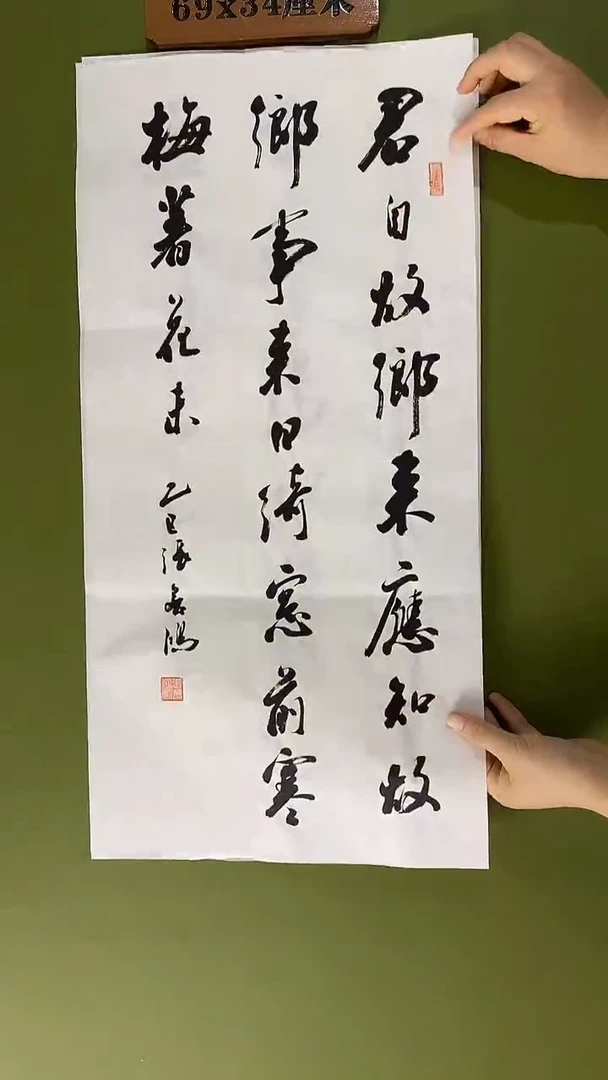 69x34厘米
君自故鄉来應知故
鄉事来日綺窓前寒
梅著花未
乙巳張